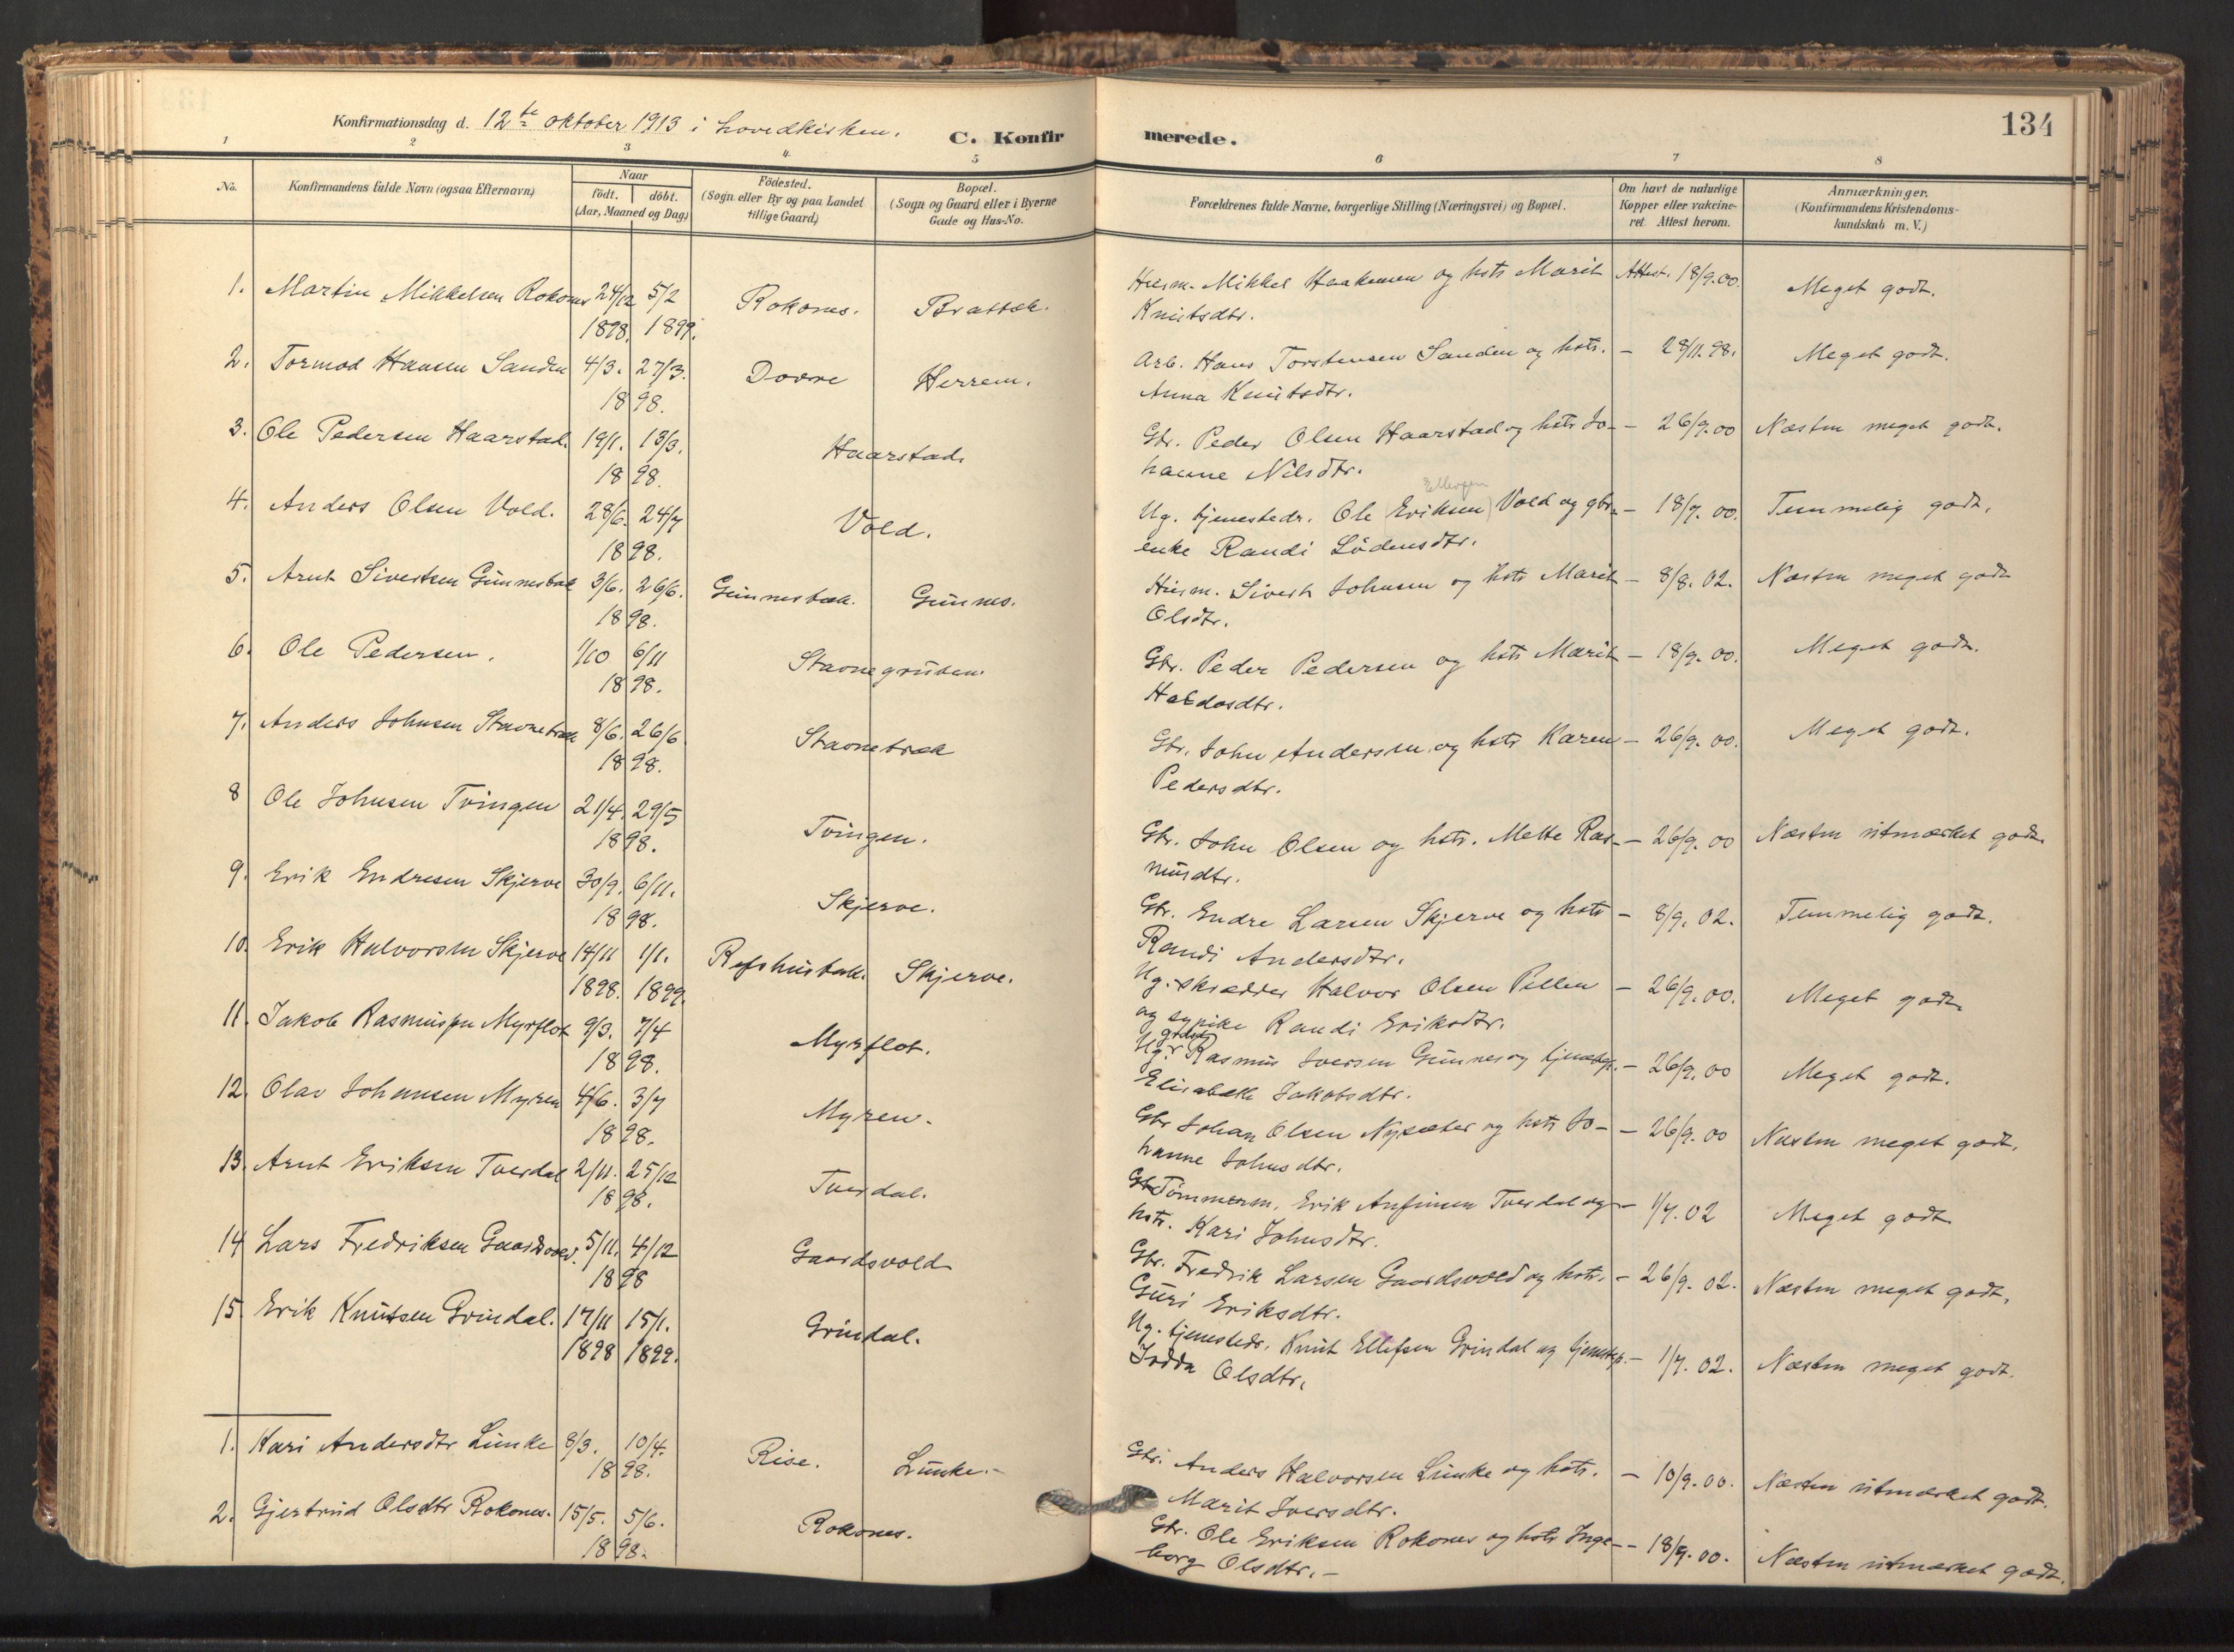 134
Konfirmationsdag d. 12te oktober 1913 i hovedkirken.
C. Konfirmerede.
1 2 3 4 5 6 7 8
No. Konfirmandens fulde Navn (ogsaa Efternavn) Naar födt. döbt. (Aar, Maaned og Dag) Födested. (Sogn eller By og paa Landet tillige Gaard) Bopæl. (Sogn og Gaard eller i Byerne Gade og Hus-No. Forældrenes fulde Navne, borgerlige Stilling (Næringsvei) og Bopæl. Om havt de naturlige Kopper eller vakcineret. Attest herom. Anmærkninger. (Konfirmandens Kristendomskundskab m. V.)
1. Martin Mikkelsen Rokones 24/12 5/2 Rokones. Brattsk. Husm. Mikkel Haakensen og hstr Marit Attest. 18/9.00. Meget godt.
1898. 1899. Knutsdtr.
2. Tormod Hansen Sanden 4/3. 27/3. Dovre Herrem. Arb. Hans Torstensen Sanden og hstr. - 28/11.98. Meget godt.
1898. Anna Knutsdtr.
3. Ole Pedersen Haarstad. 19/1. 13/3. Haarstad. Gbr. Peder Olsen Haarstad og hstr Jo- - 26/9.00 Næsten meget godt.
1898. hanne Nilsdtr.
4. Anders Olsen Vold. 28/6. 24/7 Vold. Ug. tjenestedr. Ole (Eriksen) Vold og gbr.- - 18/9.00. Temmelig godt.
1898. enke Randi Lödensdtr.
5. Arnt Sivertsen Gunnesbak 3/6. 26/6. Gunnesbak. Gunnes. Husm. Sivert Johnsen og hstr Marit - 8/8.02. Næsten meget godt
1898. Olsdtr.
6. Ole Pedersen. 1/10 6/11 Stavnegruben. Gbr. Peder Pedersen og hstr Marit - 18/9.00. Meget godt.
1898. Haldosdtr.
7. Anders Johnsen Stavnetræ 8/6. 26/6. Stavnetræa Gbr. John Andersen og hstr Karen - 26/9.00. Meget godt.
1898. Pedersdtr.
8 Ole Johnsen Tvingen 21/4. 29/5 Tvingen. Gbr. John Olsen og hstr. Mette Ras- - 26/9.00 Næsten utmærket godt.
1898. musdtr.
9. Erik Endresen Skjerve 30/9. 6/11. Skjerve. Gbr. Endre Larsen Skjerve og hstr - 8/9.02. Temmelig godt.
1898. Randi Andersdtr.
10. Erik Halvorsen Skjerve 14/11 1/1. Refshusbak. Skjerve. Ug. skrædder Halvor Olsen Pellen - 26/9.00. Meget godt.
1898. 1899. og sypike Randi Eriksdtr.
11. Jakob Rasmussen Myrflot 9/3. 7/4 Myrflot. Ug. Rasmus Iversen Gunnes og tjenestep. - 26/9.00 Meget godt.
1898. Elisabeth Jakobsdtr.
12. Olav Johansen Myren 4/6. 3/7 Myren. Gbr Johan Olsen Nysæter og hstr Jo- - 26/9.00 Næsten meget godt.
1898. hanne Johnsdtr.
13. Arnt Eriksen Tverdal 2/11. 25/12 Tverdal. Tömmerm. Erik Anfinsen Tverdal og - 1/7.02 Meget godt
1898. hstr. Kari Johnsdtr.
14 Lars Fredriksen Gaardsvold. 5/11. 4/12 Gaardsvold Gbr. Fredrik Larsen Gaardsvold og hstr. - 26/9.02. Næsten meget godt.
1898 Guri Eriksdtr.
15. Erik Knutsen Grindal. 17/11 15/1. Grindal. Ug. tjenestedr. Knut Ellefsen Grindal og tjenestep. - 1/7.02. Næsten meget godt.
1898 1899. Olsdtr.
1. Kari Andersdtr Lunke 8/3. 10/4. Rise. Lunke.- Gbr. Anders Halvorsen Lunke og hstr. - 10/9.00. Næsten utmærket godt.
1898. Marit Iversdtr.
2. Gjertrud Olsdtr Rokones. 15/5. 5/6. Rokones. Gbr. Ole Eriksen Rokones og hstr Inge- - 18/9.00. Næsten utmærket godt.
1898. borg Olsdtr.-